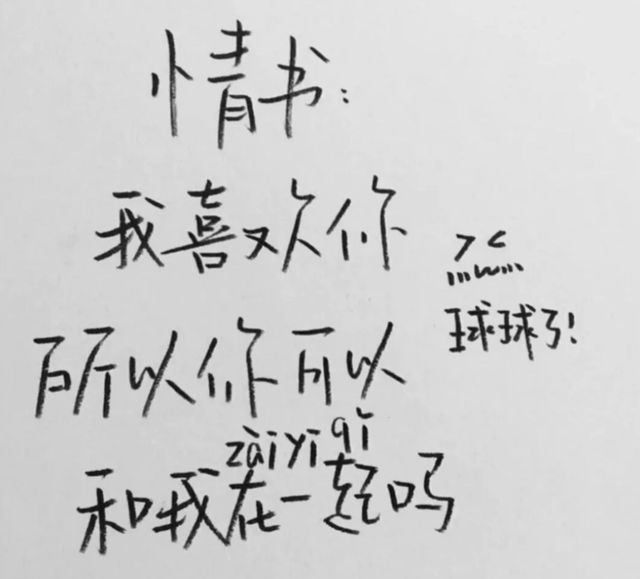 情书:
我喜欢你
><
球球了!
所以你可以
zàiyìqǐ
和我在一起吗